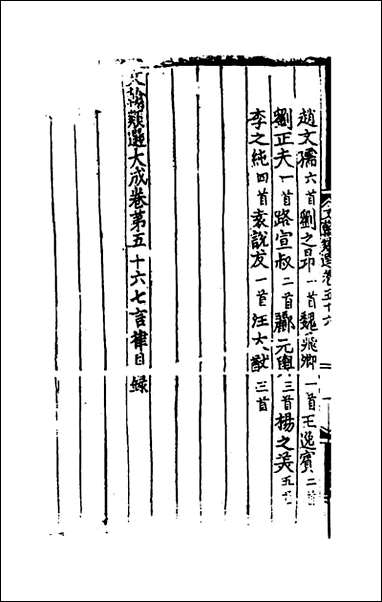 文翰類選卷五十六
趙文孺六首劉之昂一首魏飛卿一首王逸賓二首
劉正夫一首路宣叔二首酈元輿三首楊之美五首
李之純四首袁說友一首汪大猷三首
文翰類選大成卷第五十六七言律目錄